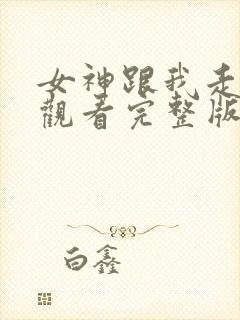 女神跟我走
觀看完整版
白鑫